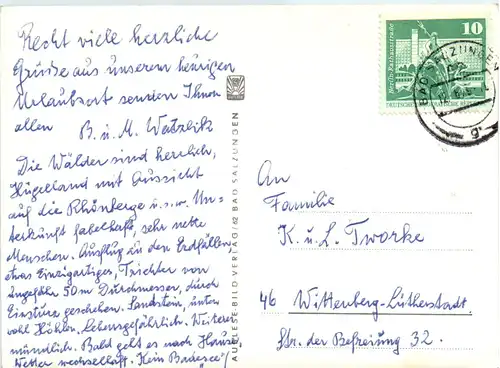 Recht viele herzliche
Grüsse aus unserem heurigen
Urlaubsort senden Ihnen
allen B. u. M. Watzlitz
Die Wälder sind herrlich,
Hügelland mit Aussicht
auf die Rhönberge u.s.w. Un-
terkunft fabelhaft, sehr nette
Menschen. Ausflug zu den Erdfällen
etwas Einzigartiges, Trichter von
ungefähr 50 m Durchmesser, durch
Einsturz geschehen. Sandstein, unten
wohl Höhlen. Lebensgefährlich. Weiteres
mündlich. Bald geht es nach Hause,
Wetter wechselhaft. Kein Badesee
AUSLESE-BILD-VERLAG / 62 BAD SALZUNGEN
10
Berlin, Rathausstraße
DEUTSCHE
BAD SALZUNGEN
An
Familie
K. u. L. Tworke
46 Wittenberg-Lutherstadt
Str. der Befreiung 32.